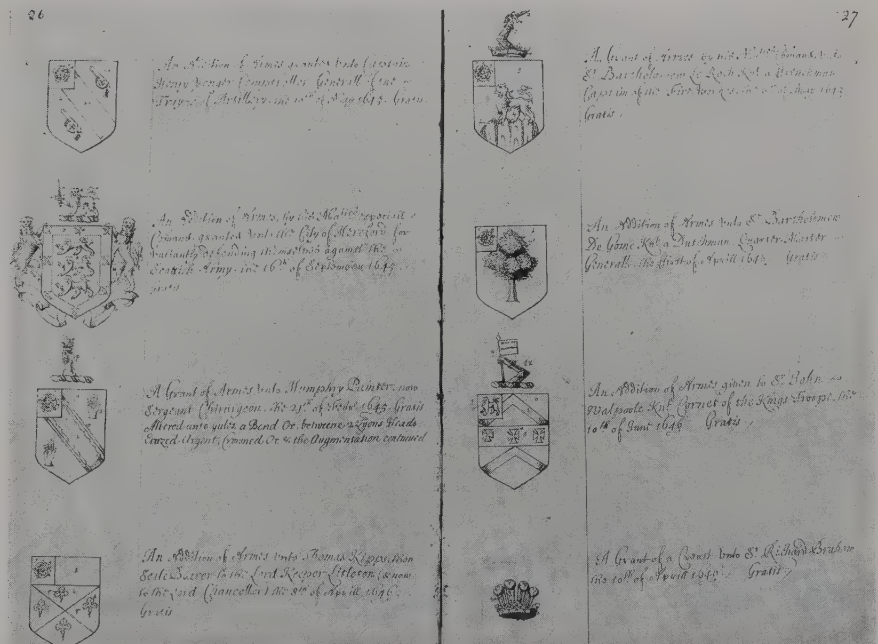 26
An Addition of Armes granted unto Captain
Henry Younger Comptroller Generall
Trayne of Artillery, the 10th of 1645. Gratis.
An Addition of Armes, by his Majties especiall
Command, granted unto the City of Hereford for
valiantly defending themselves against the
Scotish Army, the 16th of September 1645.
Gratis
A Grant of Armes unto Humphry Painter, now
Sergeant Chirurgeon, the 21th of 1645 Gratis
Altered unto gules a Bend Or, betweene 2 Lyons Heads
Erazed Argent, Crowned Or & the Augmentation continued
An Addition of Armes unto Thomas Kipps, then
Seale Bearer to the Lord Keeper Litleton, & now
to the Lord Chancellor, the 8th of Aprill, 1646.
Gratis
27
A Grant of Armes by his Commands, unto
Sr Bartholomew La Roch Knt a Frenchman
Captain of the Fire workes, the of 1645
Gratis.
An Addition of Armes unto Sr Bartholomew
De Gome Knt a Dutchman, Quarter Master
Generall, the first of Aprill 1646. Gratis
An Addition of Armes given to Sr John
Walpoole Knt Cornet of the Kings Troope, the
10th of June 1646 Gratis,
A Grant of a Creast unto Sr Richard Braham
the 10th of Aprill 1646 Gratis,